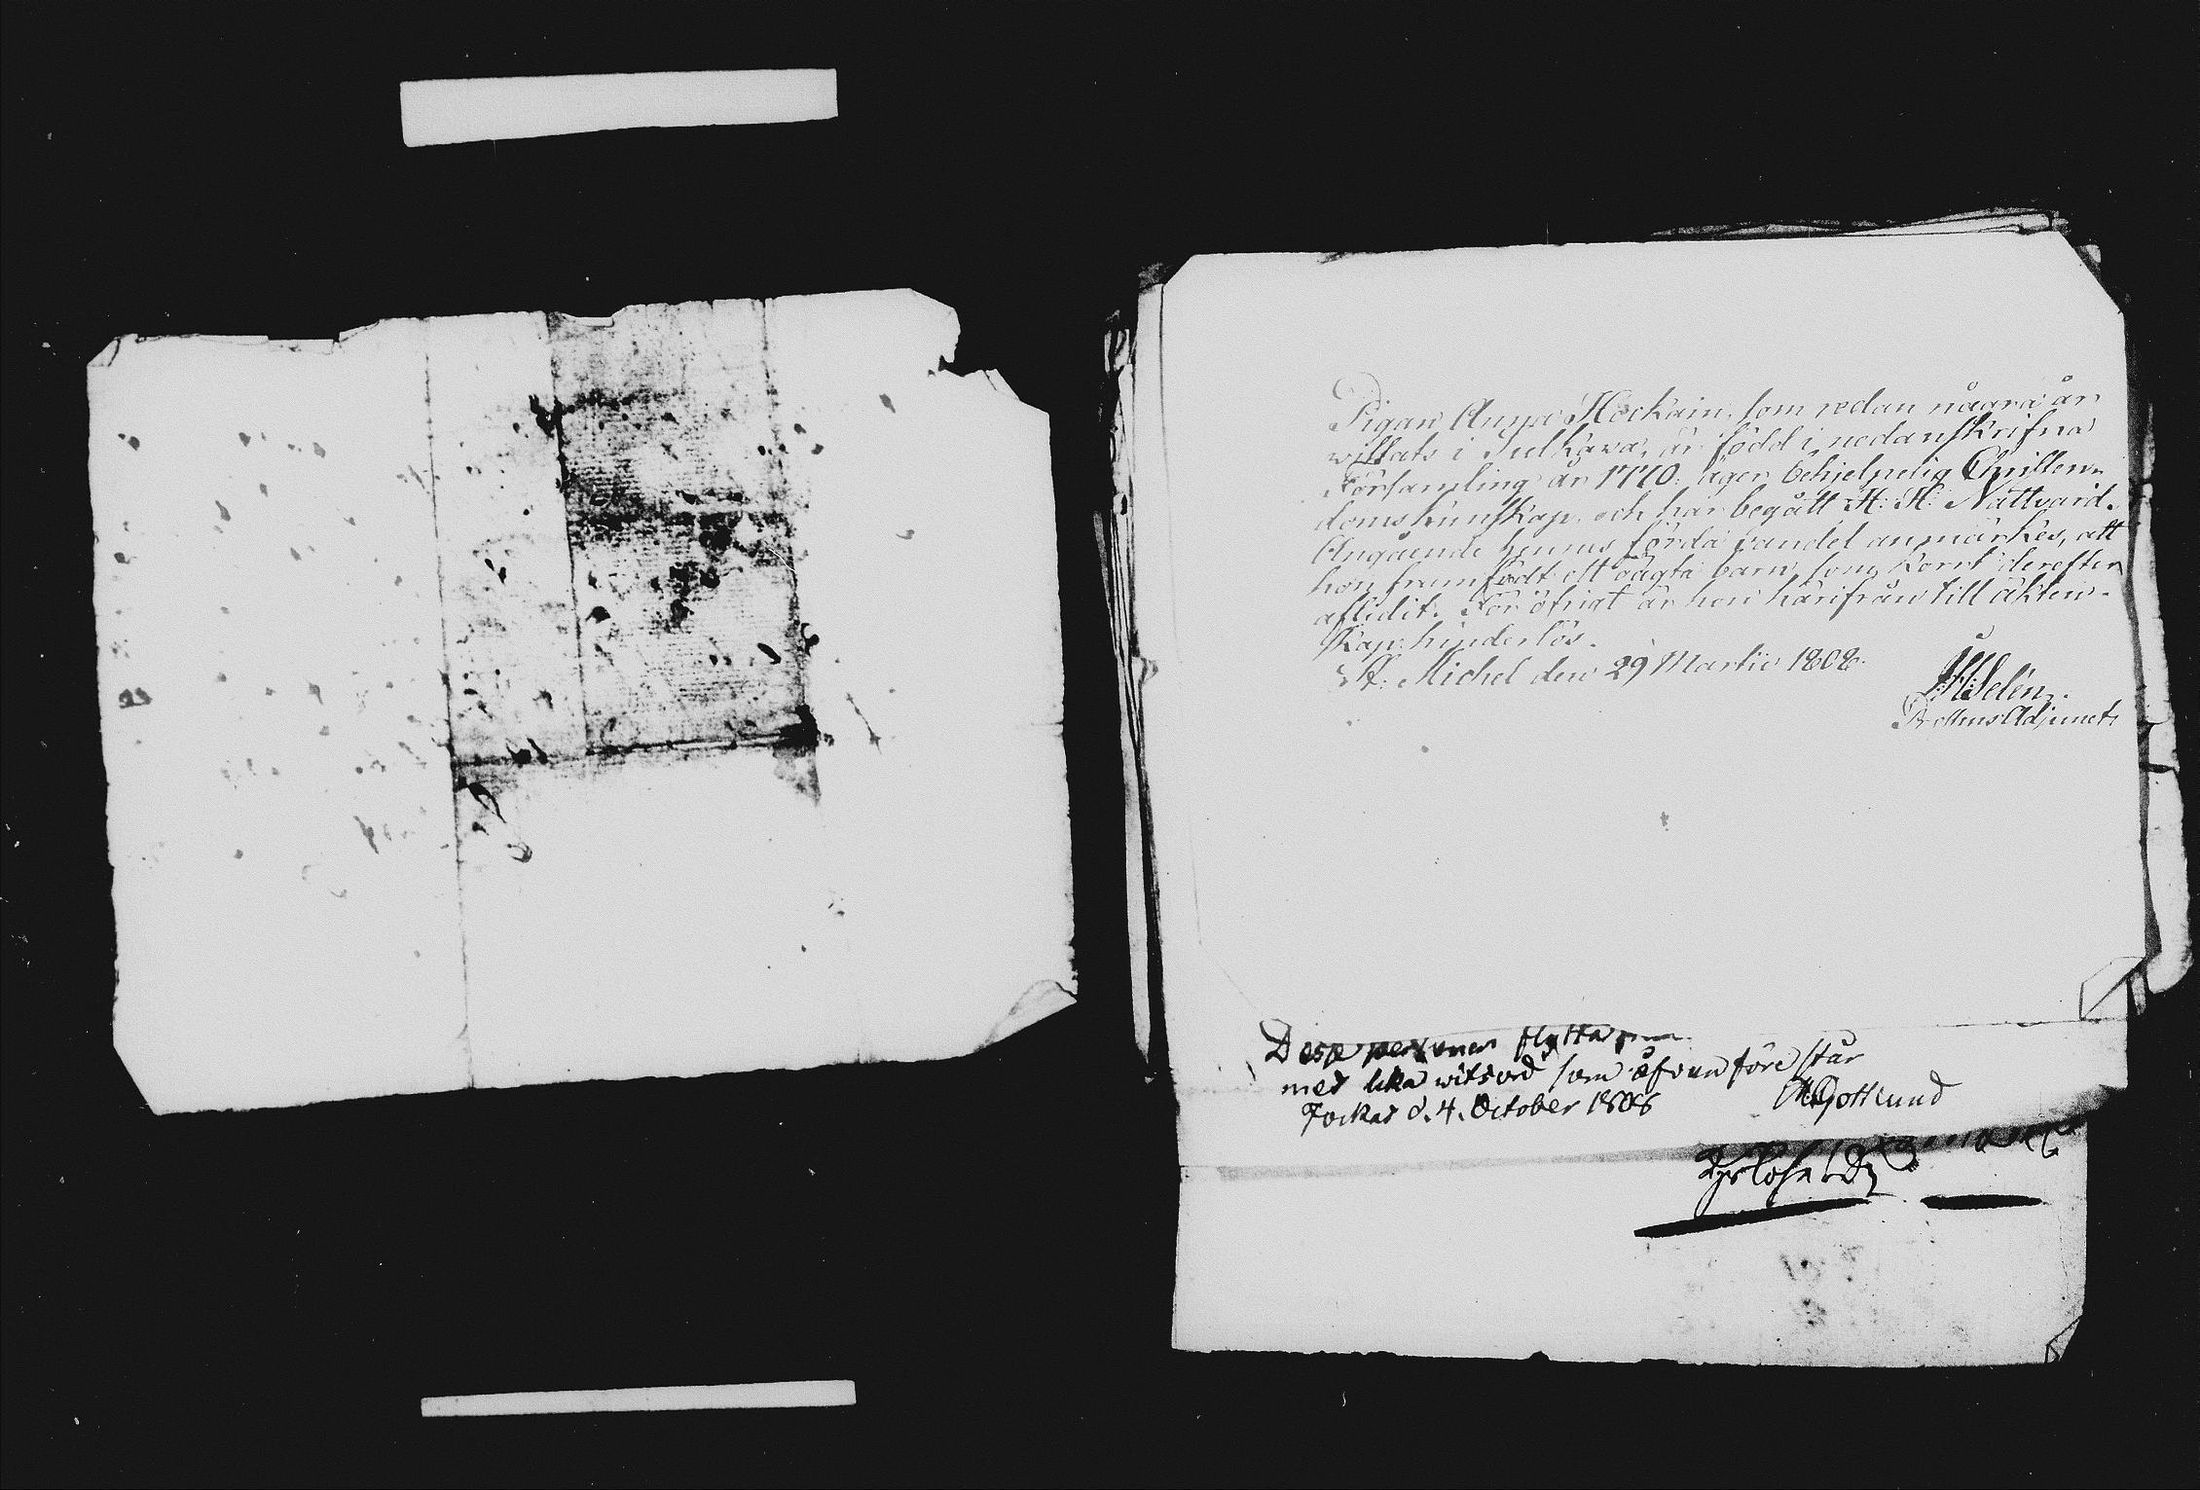 Pigan Anna Hockain, som redan några år
wistats i Sulkawa, är född i nedanskrifna
Församling år 1770. äger behjelpelig Christen-
doms kunskap, och har begått H: H: Nattvard.
Angående hennes förda vandel anmärkes, att
hon framfödt ett oägta barn, som kort derefter
aflidit. För öfrigt är hon härifrån till äkten-
skap hinderlös.
St. Michel den 29 Martii 1808.
Selén
Adjunct
Desse personer flytta
med lika witsord som åfvanföre står
Jockas d. 4. October 1806
Gottlund